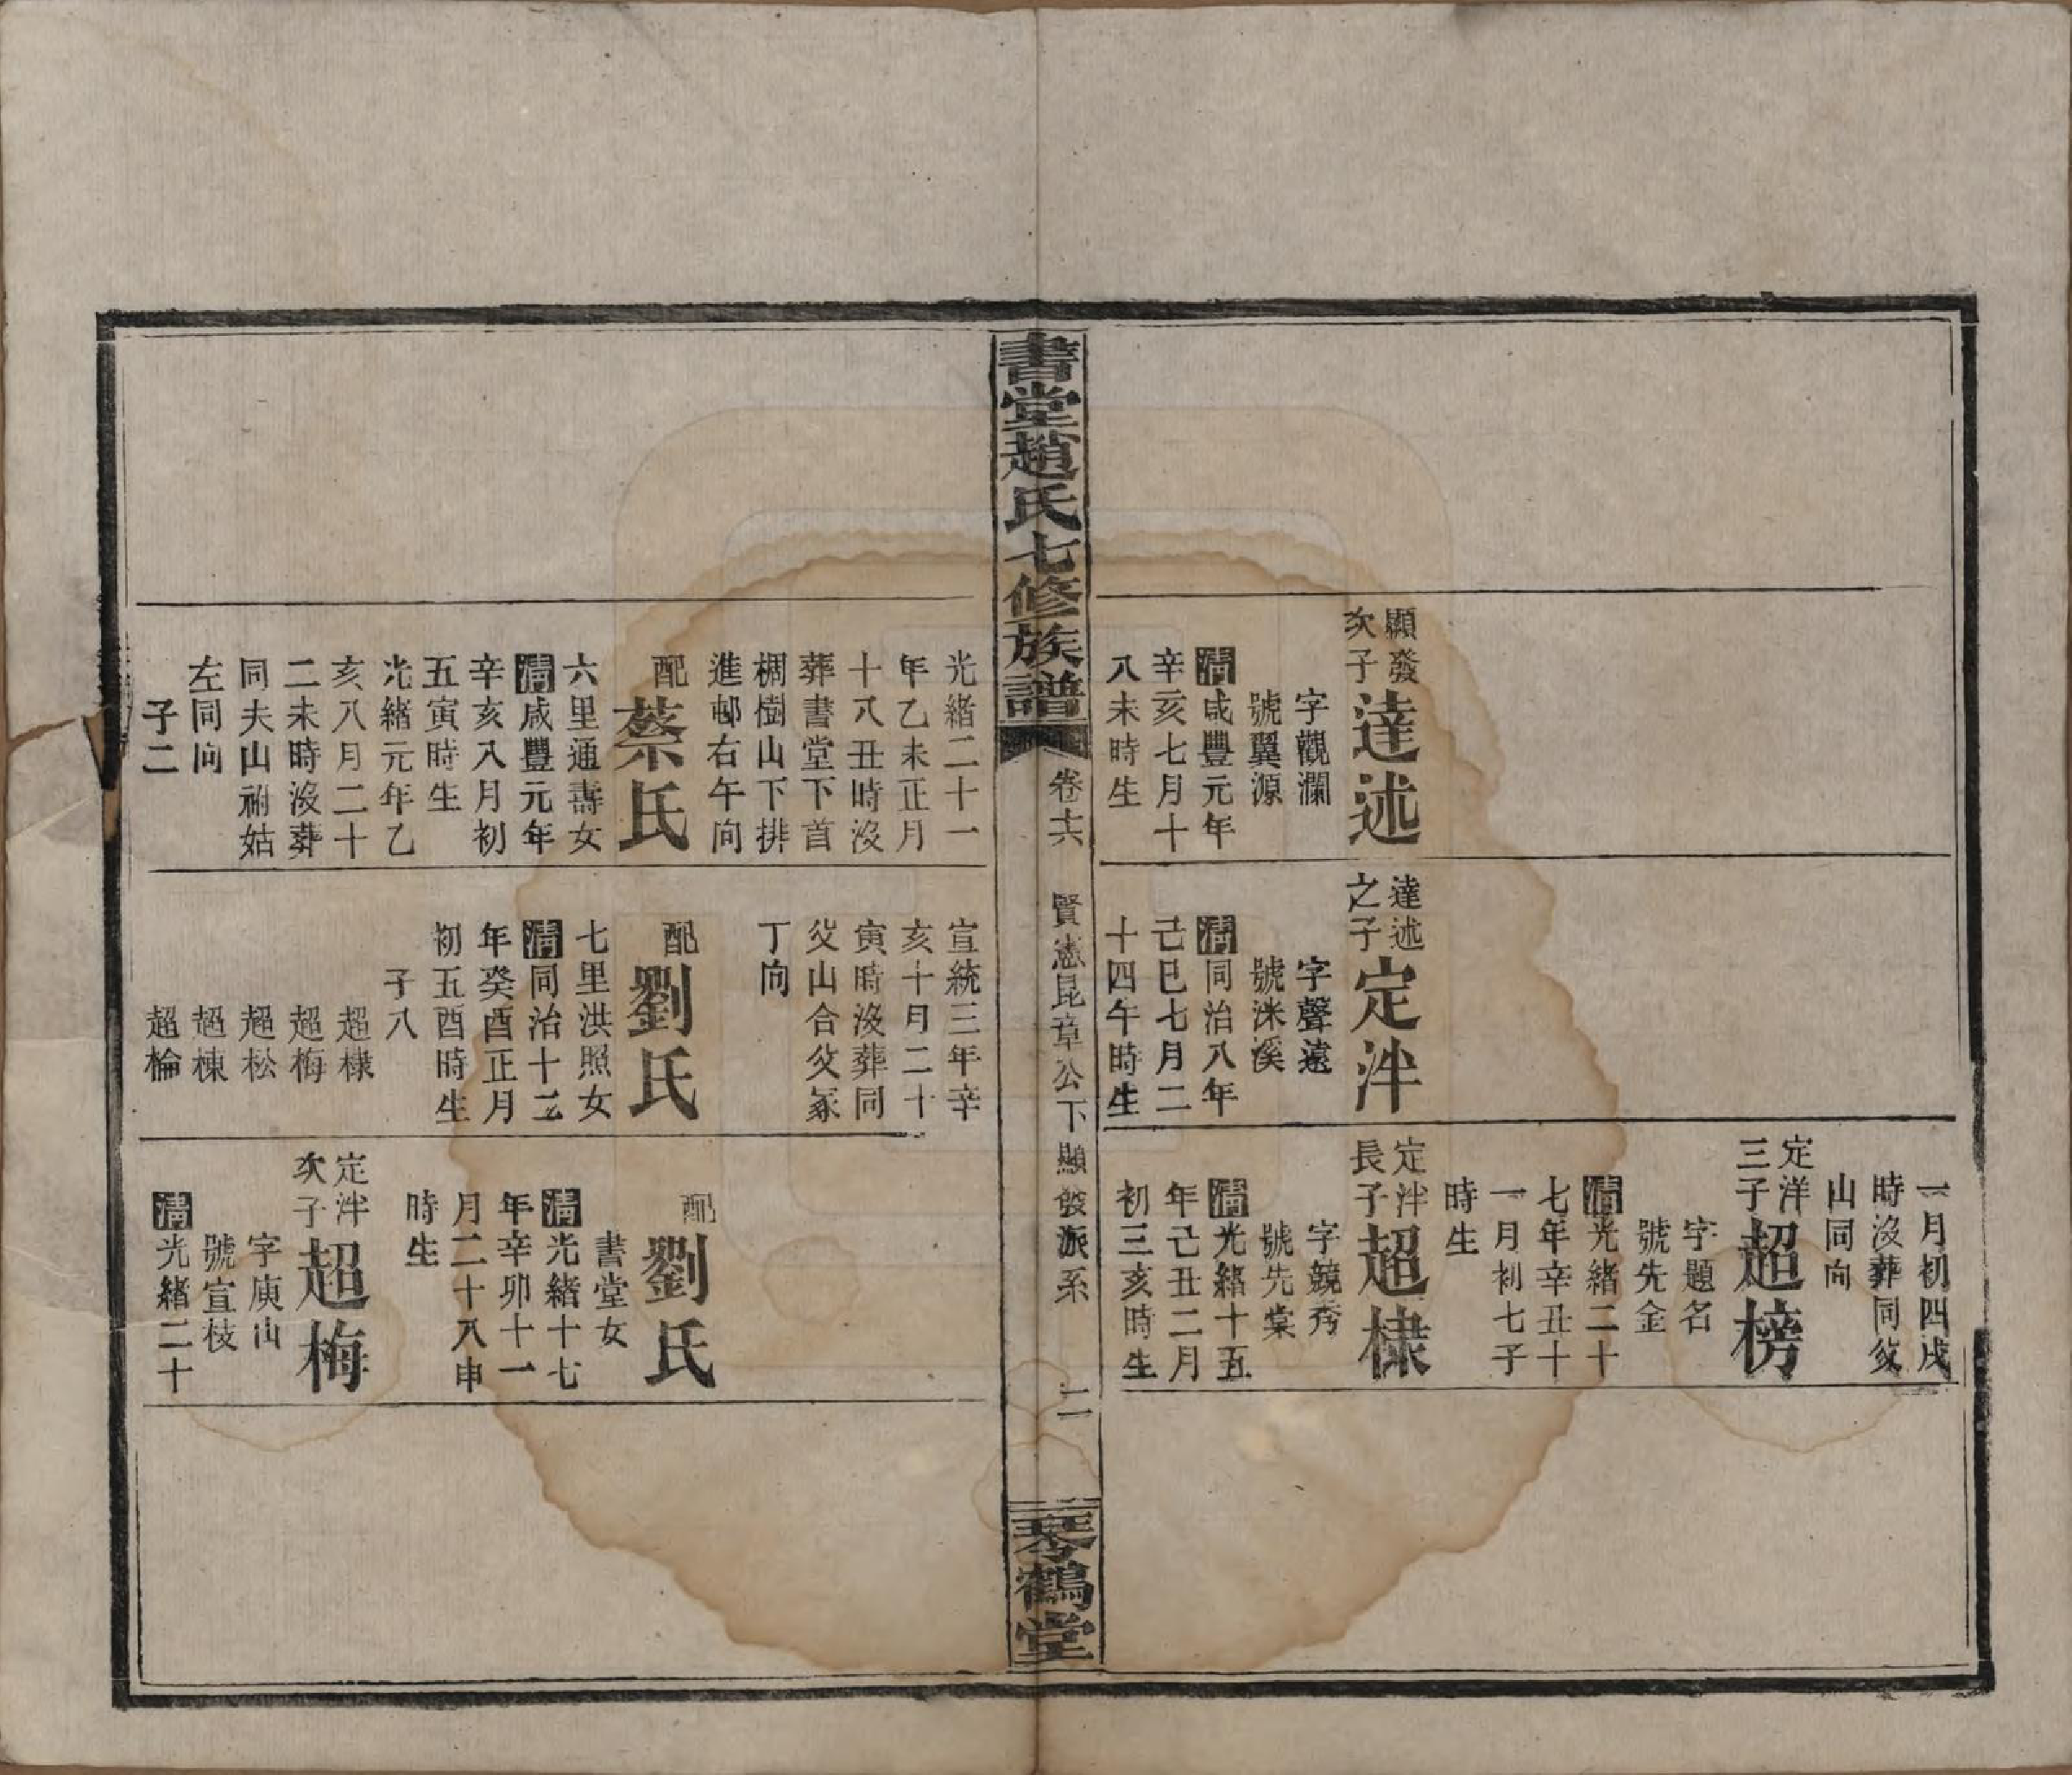 顯發
次子
達述
字觀瀾
號翼源
清咸豐元年
辛亥七月十
八未時生
達述
之子
定泮
字聲遠
號洙溪
清同治八年
己巳七月二
十四午時生
一月初四戌
時沒葬同㚆
山同向
定洋
三子
超榜
字題名
號先金
清光緒二十
七年辛丑十
一月初七子
時生
定泮
長子
超棣
字競秀
號先棠
清光緒十五
年己丑二月
初三亥時生
書堂趙氏七修族譜
卷十六
賢憲昆章公下顯發派系
二
琴鶴堂
光緒二十一
年乙未正月
十八丑時沒
葬書堂下首
椆樹山下排
進邨右午向
配
蔡氏
六里通壽女
清咸豐元年
辛亥八月初
五寅時生
光緒元年乙
亥八月二十
二未時沒葬
同夫山祔姑
左同向
子二
宣統三年辛
亥十月二十
寅時沒葬同
㚆山合㚆冢
丁向
配
劉氏
七里洪照女
清同治十二
年癸酉正月
初五酉時生
子八
超棣
超梅
超松
超棟
超棆
配
劉氏
書堂女
清光緒十七
年辛卯十一
月二十八申
時生
定泮
次子
超梅
字庾山
號宣枝
清光緒二十